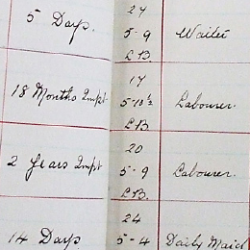 24
5 Days. 5-9 Waiter
L B.
17
18 Months Impt. 5-10½ Labourer
L B.
20
2 Years Impt 5-9 Labourer
L B.
24
14 Days 5-4 Daily Maid